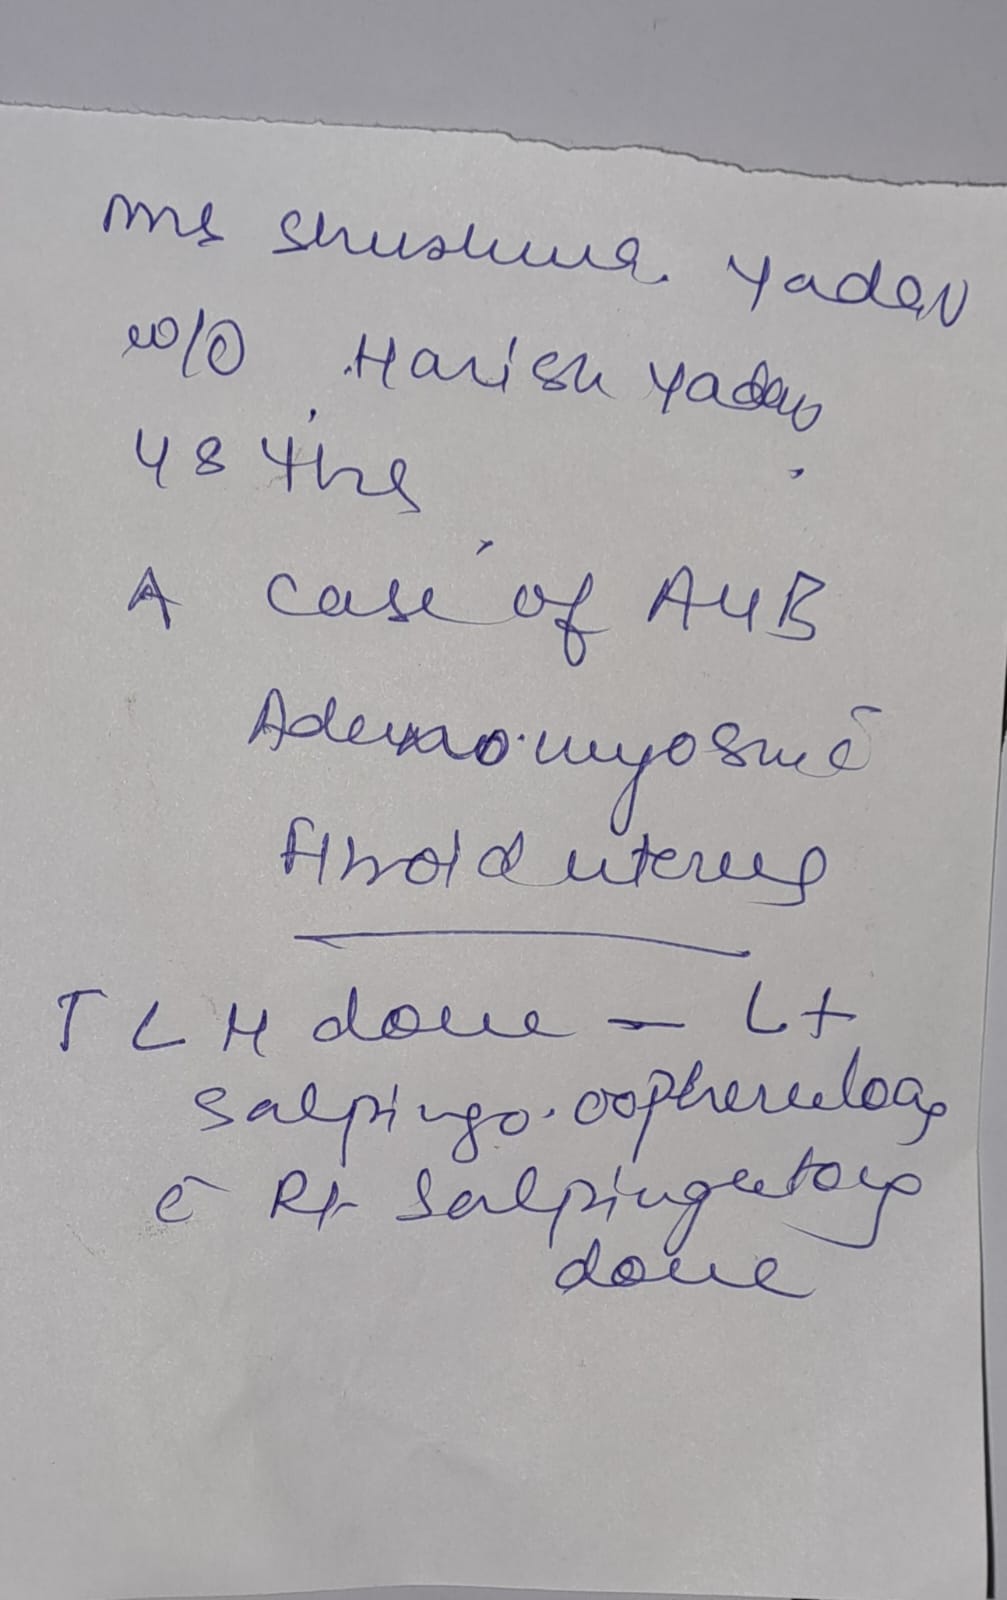 Mrs Shushma Yadav
w/o Harish Yadav
48 Yrs
A case of AUB
Adenomyosis c̄
fibroid uterus
TLH done - Lt
salpingo-oopherectomy
c̄ Rt salpingectomy
done